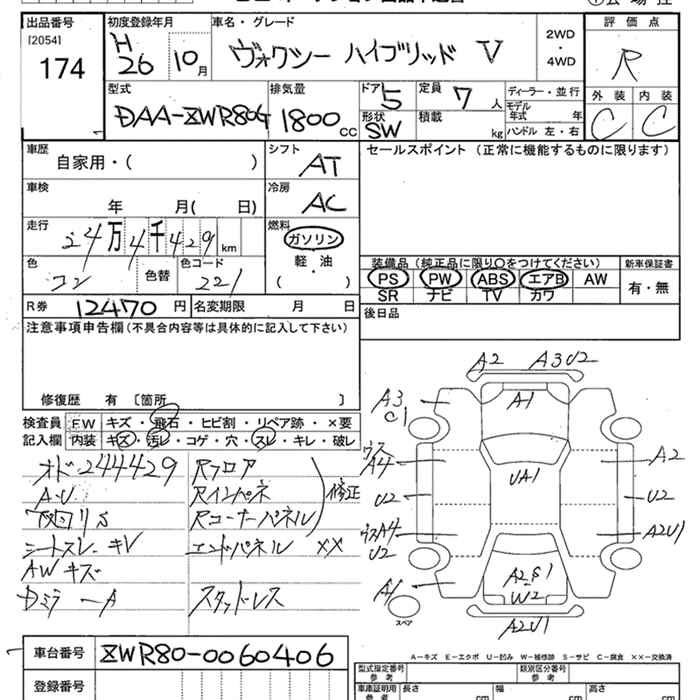 出品番号
[2054]
174
初度登録年月
H
26
10月
車名・グレード
ヴォクシー ハイブリッド V
2WD
・
4WD
評価点
R
外装 内装
C C
型式
DAA-ZWR80G
排気量
1800cc
ドア
5
定員
7人
形状
SW
積載
kg
ディーラー・並行
モデル
年式 年
ハンドル 左・右
車歴
自家用・( )
シフト
AT
セールスポイント (正常に機能するものに限ります)
車検
年 月( 日)
冷房
AC
走行
24万4千429km
燃料
ガソリン
軽・油
( )
色
コン
色替
色コード
221
装備品 (純正品に限り○をつけてください)
PS PW ABS エアB AW
SR ナビ TV カワ
新車保証書
有・無
R券 12470円
名変期限 月 日
後日品
注意事項申告欄 (不具合内容等は具体的に記入して下さい)
修復歴 有 [箇所 ]
検査員 FW キズ・飛石・ヒビ割・リペア跡・×要
記入欄 内装 キズ・汚レ・コゲ・穴・スレ・キレ・破レ
オド244429
A・U
下回りS
シートスレ・キV
AWキズ
Dミラ ーA
Rフロア
Rインパネ
Rコーナーパネル
修正
エンドパネル ××
スタッドレス
A2 A3U2
A3
C1
A1
ウス
A4
A2
UA1
U2
U2
ウスA4
U2
A2U1
A1
A2S1
W2
A2U1
スペア
A-キズ E-エクボ U-凹み W-補修跡 S-サビ C-腐食 ××-交換済
車台番号 ZWR80-0060406
登録番号
型式指定番号
参考
類別区分番号
参考
車庫証明用
参考
長さ cm
幅 cm
高さ cm